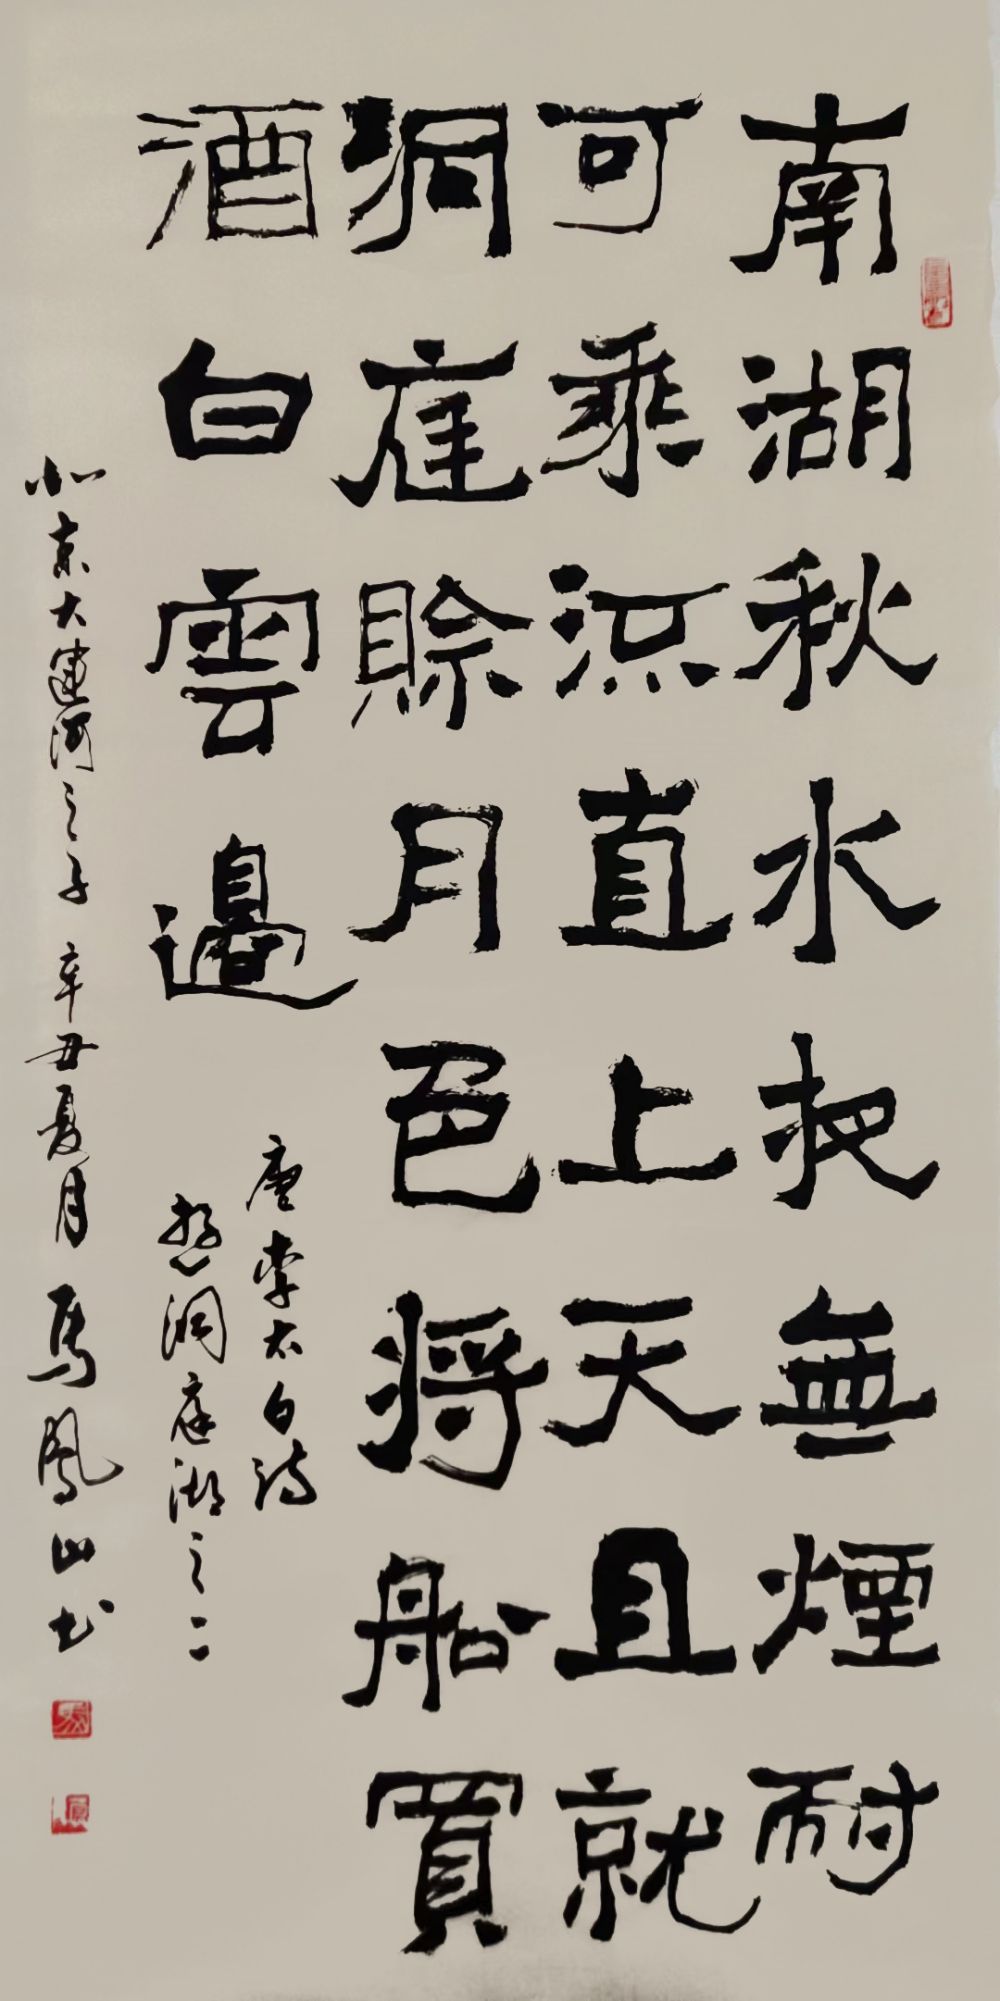 南湖秋水夜無煙耐
可乘流直上天且就
洞庭賒月色將船買
酒白雲邊
唐李太白詩
遊洞庭湖之二
北京大運河之子 辛丑夏月 馬鳳山书